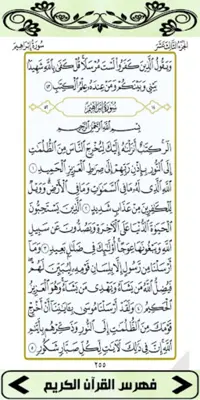 الجزء الثالث عشر سورة إبراهيم
وَيَقُولُ الَّذِينَ كَفَرُوا لَسْتَ مُرْسَلًا قُلْ كَفَىٰ بِاللَّهِ شَهِيدًا
بَيْنِي وَبَيْنَكُمْ وَمَنْ عِندَهُ عِلْمُ الْكِتَابِ ٤٣
سُورَةُ إِبْرَاهِيمَ
بِسْمِ اللَّهِ الرَّحْمَٰنِ الرَّحِيمِ
الر كِتَابٌ أَنزَلْنَاهُ إِلَيْكَ لِتُخْرِجَ النَّاسَ مِنَ الظُّلُمَاتِ
إِلَى النُّورِ بِإِذْنِ رَبِّهِمْ إِلَىٰ صِرَاطِ الْعَزِيزِ الْحَمِيدِ ١
اللَّهِ الَّذِي لَهُ مَا فِي السَّمَاوَاتِ وَمَا فِي الْأَرْضِ وَوَيْلٌ
لِّلْكَافِرِينَ مِنْ عَذَابٍ شَدِيدٍ ٢ الَّذِينَ يَسْتَحِبُّونَ
الْحَيَاةَ الدُّنْيَا عَلَى الْآخِرَةِ وَيَصُدُّونَ عَن سَبِيلِ
اللَّهِ وَيَبْغُونَهَا عِوَجًا أُولَٰئِكَ فِي ضَلَالٍ بَعِيدٍ ٣ وَمَا
أَرْسَلْنَا مِن رَّسُولٍ إِلَّا بِلِسَانِ قَوْمِهِ لِيُبَيِّنَ لَهُمْ
فَيُضِلُّ اللَّهُ مَن يَشَاءُ وَيَهْدِي مَن يَشَاءُ وَهُوَ الْعَزِيزُ
الْحَكِيمُ ٤ وَلَقَدْ أَرْسَلْنَا مُوسَىٰ بِآيَاتِنَا أَنْ أَخْرِجْ
قَوْمَكَ مِنَ الظُّلُمَاتِ إِلَى النُّورِ وَذَكِّرْهُم بِأَيَّامِ
اللَّهِ إِنَّ فِي ذَٰلِكَ لَآيَاتٍ لِّكُلِّ صَبَّارٍ شَكُورٍ ٥
٢٥٥
فهرس القرآن الكريم